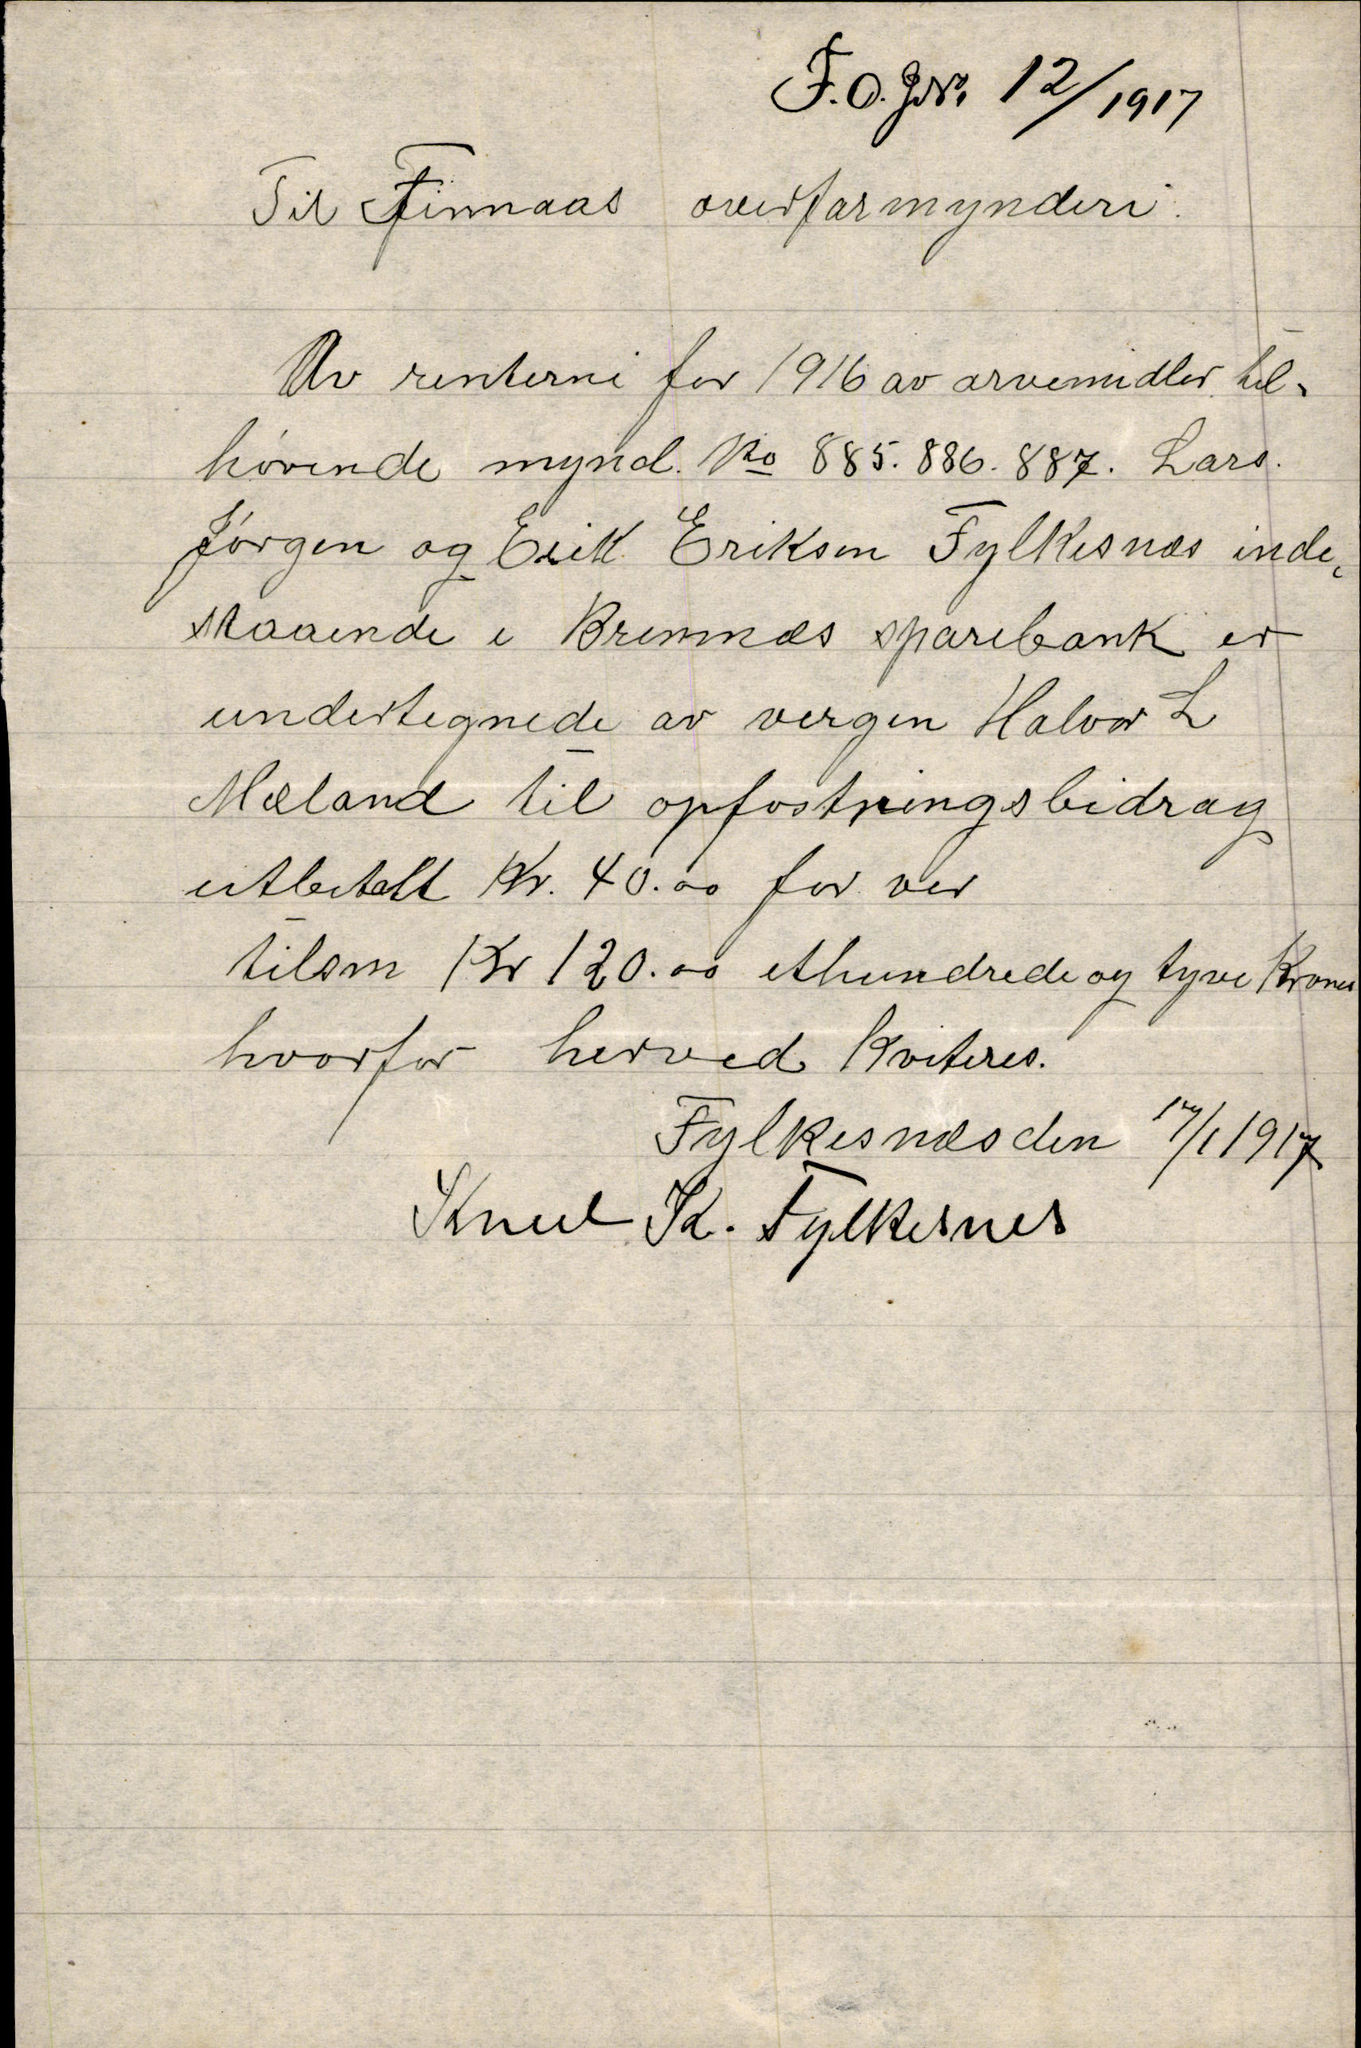 F.O. JNo. 12/1917
Til Finnaas overformynderi.
Av renterne for 1916 av arvemidler til-
hørende mynd. No 885. 886. 887. Lars.
Jørgen og Erik Eriksen Fylkesnæs inde,
staaende i Bremnæs sparebank er
undertegnede av vergen Halvor L
Mæland til opfostringsbidrag
utbetalt Kr. 40.00 for ver
tilsm Kr 120.00 ethundrede og tyve Kroner
hvorfor herved kviteres.
Fylkesnæs den 17/1 1917
Knut K. Fylkesnes